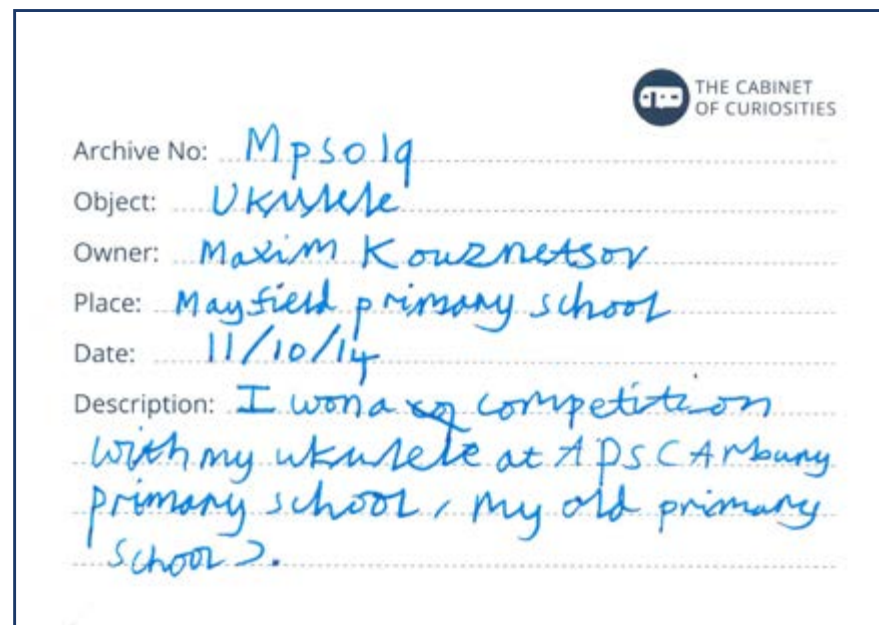 THE CABINET
OF CURIOSITIES
Archive No: Mps019
Object: Ukulele
Owner: Maxim Kouznetsov
Place: Mayfield primary school
Date: 11/10/14
Description: I won a competition
with my ukulele at APS (Arbury
primary school, my old primary
school).